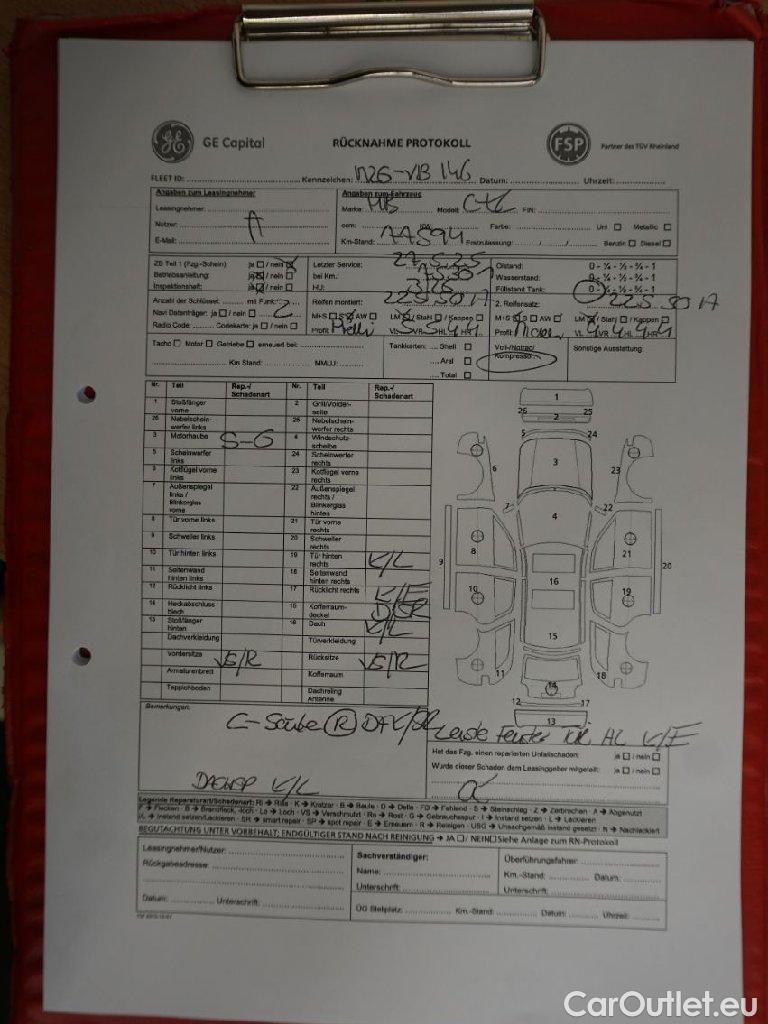 GE Capital RÜCKNAHME PROTOKOLL FSP Partner des TÜV Rheinland
FLEET ID: Kennzeichen: Datum: Uhrzeit:
Angaben zum Leasingnehmer Angaben zum Fahrzeug
Leasingnehmer: Marke: MB Modell: FIN:
Nutzer: A ccm: Farbe: Uni Metallic
E-Mail: Km-Stand: Erstzulassung: / / Benzin Diesel
ZB Teil 1 (Fzg.-Schein) ja / nein Letzter Service: 27.5.25 Ölstand: 0 - ¼ - ½ - ¾ - 1
Betriebsanleitung: ja / nein bei Km. Wasserstand: 0 - ¼ - ½ - ¾ - 1
Inspektionsheft: ja / nein HU: Füllstand Tank: 0 - ¼ - ½ - ¾ - 1
Anzahl der Schlüssel: mit Funk: 2 Reifen montiert: 225 50 17 2. Reifensatz: 225 50 17
Navi Datenträger: ja / nein M+S S AW LM / Stahl / Kappen M+S S AW LM / Stahl / Kappen
Radio Code: Codekarte: ja / nein Profil VL VR HL HR Profil VL VR HL HR
Tacho Motor Getriebe erneuert bei: Tankkarten: Shell Voll-/Notrad/ Sonstige Ausstattung:
Km Stand: MM/JJ: Aral Kompressor
Total
Nr. Teil Rep.-/ Schadenart Nr. Teil Rep.-/ Schadenart
1 Stoßfänger vorne 2 Grill/Vorderseite
26 Nebelscheinwerfer links 25 Nebelscheinwerfer rechts
3 Motorhaube S-G 4 Windschutzscheibe
5 Scheinwerfer links 24 Scheinwerfer rechts
6 Kotflügel vorne links 23 Kotflügel vorne rechts
7 Außenspiegel links / Blinkerglas vorne 22 Außenspiegel rechts / Blinkerglas hinten
8 Tür vorne links 21 Tür vorne rechts
9 Schweller links 20 Schweller rechts
10 Tür hinten links 19 Tür hinten rechts K/L
11 Seitenwand hinten links 18 Seitenwand hinten rechts
12 Rücklicht links 17 Rücklicht rechts K/E
14 Heckabschlussblech 15 Kofferraumdeckel D/SR
13 Stoßfänger hinten 16 Dach K/L
Dachverkleidung Türverkleidung
Vordersitze VS/R Rücksitze VS/R
Armaturenbrett Kofferraum
Teppichboden Dachreling Antenne
1
26 2 25
5 24
3
6 23
7 22
4
8 21
9 20
16
10 19
15
11 18
14
12 17
13
Bemerkungen:
C-Säule R D/SR
Leiste Fenster Tür HL K/E
Hat das Fzg. einen reparierten Unfallschaden: ja / nein
Wurde dieser Schaden dem Leasinggeber mitgeteilt: ja / nein
K/L
Legende Reparaturart/Schadenart: RI → Riss - K → Kratzer - B → Beule - D → Delle - FD → Fehlend - S → Steinschlag - Z → Zerbrochen - A → Abgenutzt
F → Flecken - B → Brandfleck, -loch - Lo → Loch - VS → Verschmutzt - Ro → Rost - G → Gebrauchsspur - I → Instand setzen - L → Lackieren
I/L → Instand setzen/Lackieren - SR → smart repair - SP → spot repair - E → Erneuern - R → Reinigen - USG → Unsachgemäß instand gesetzt - N → Nachlackiert
BEGUTACHTUNG UNTER VORBEHALT: ENDGÜLTIGER STAND NACH REINIGUNG → JA / NEIN Siehe Anlage zum RN-Protokoll
Leasingnehmer/Nutzer: Sachverständiger: Überführungsfahrer:
Rückgabeadresse: Name: Km.-Stand: Datum:
Unterschrift: Unterschrift:
Datum: Unterschrift: ÜG Stellplatz: Km.-Stand: Datum: Uhrzeit:
CarOutlet.eu